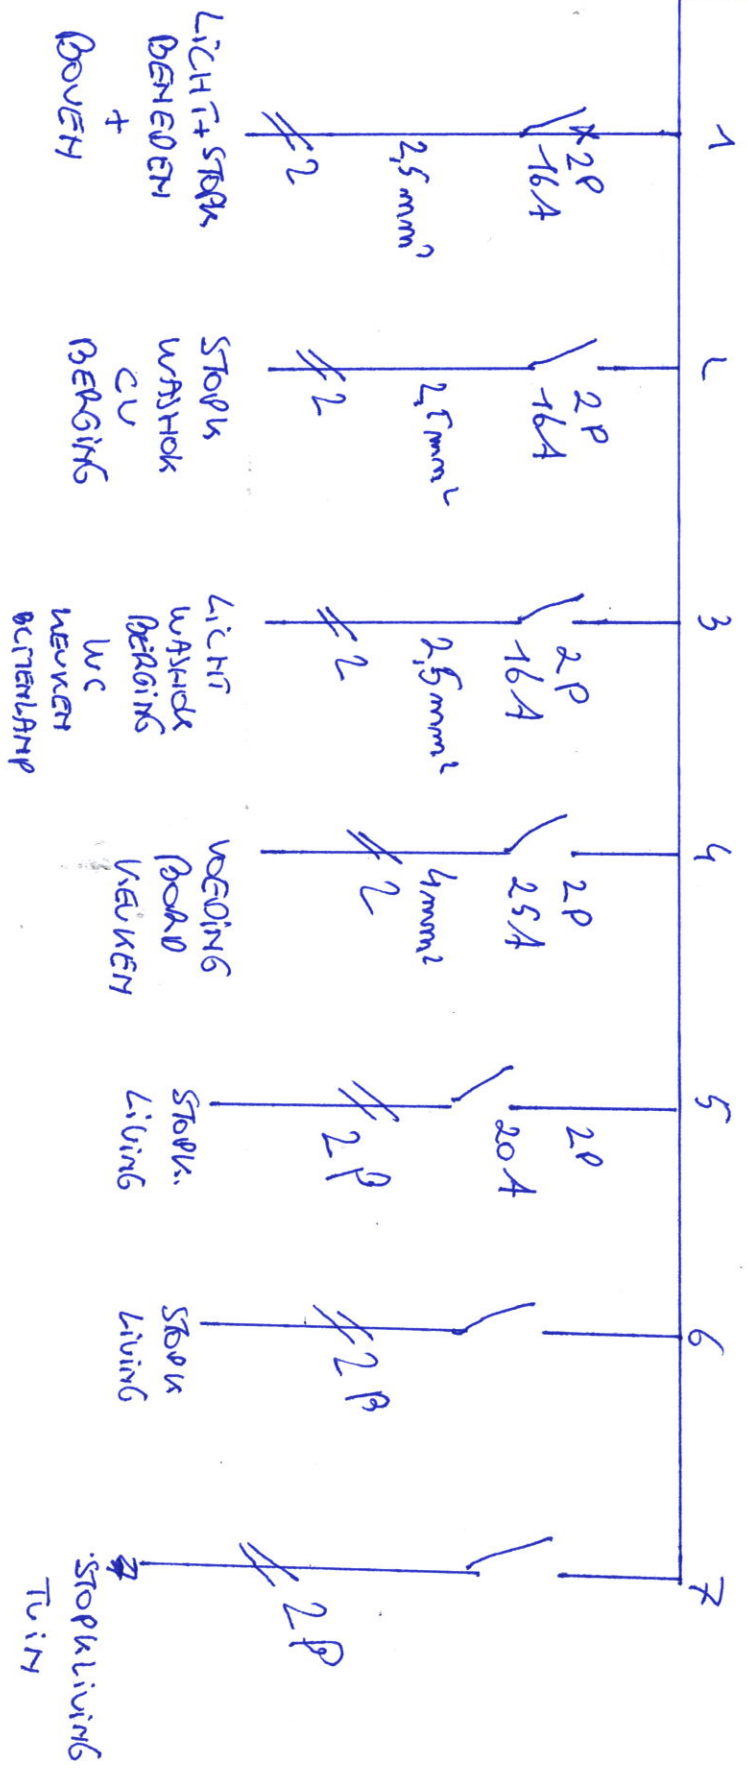 1
2P
16A
2,5mm²
2
LICHT+STOPK
BENEDEN
+
BOVEN
2
2P
16A
2,5mm²
2
STOPK
WASHOK
CV
BERGING
3
2P
16A
2,5mm²
2
LICHT
WASHOK
BERGING
WC
KEUKEN
BUITENLAMP
4
2P
25A
4mm²
2
VOEDING
BORD
KEUKEN
5
2P
20A
2P
STOPK.
LIVING
6
2P
STOPK
LIVING
7
2P
STOPK LIVING
TUIN